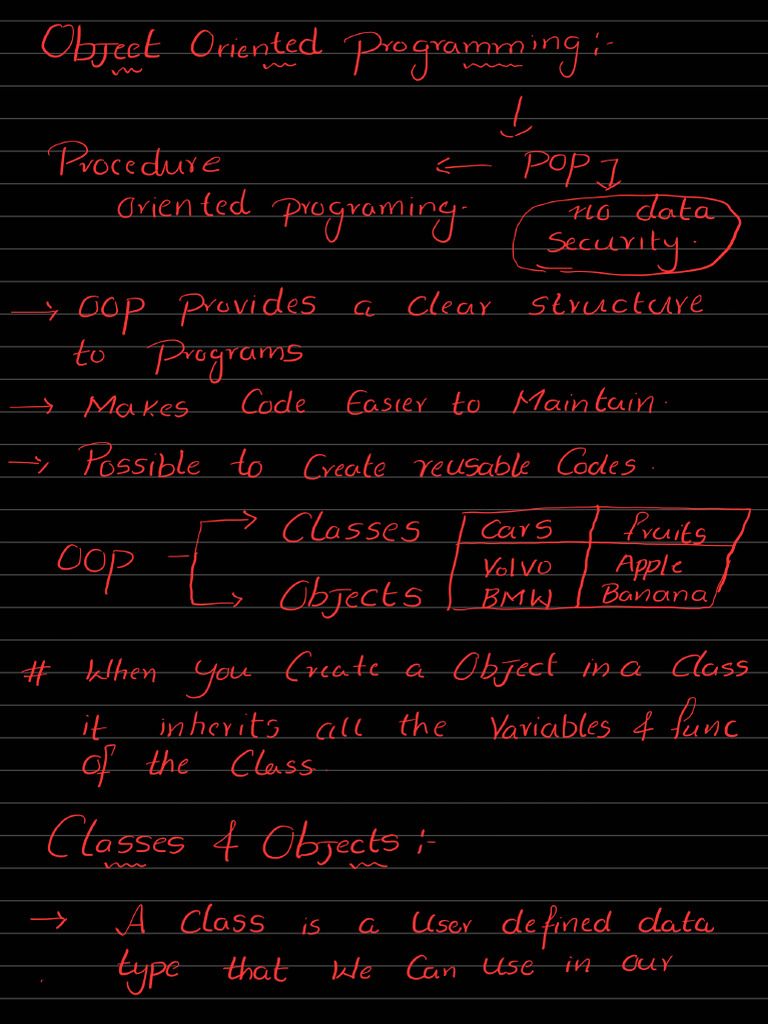 Object Oriented Programming :-
Procedure ← POP
oriented programing.
no data
security.
→ OOP Provides a clear structure
to Programs
→ Makes Code Easier to Maintain.
→ Possible to Create reusable Codes.
OOP → Classes
→ Objects
Cars fruits
Volvo Apple
BMW Banana
# When you Create a Object in a Class
it inherits all the Variables & func
of the Class.
Classes & Objects :-
→ A Class is a User defined data
type that We Can Use in our